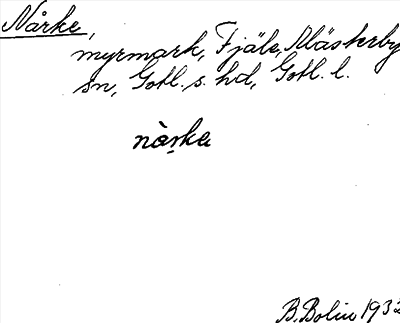 Närke,
myrmark, Fjäle, Mästerby
sn, Gotl. s. hd, Gotl. l.
nàrka
B. Bolin 1932